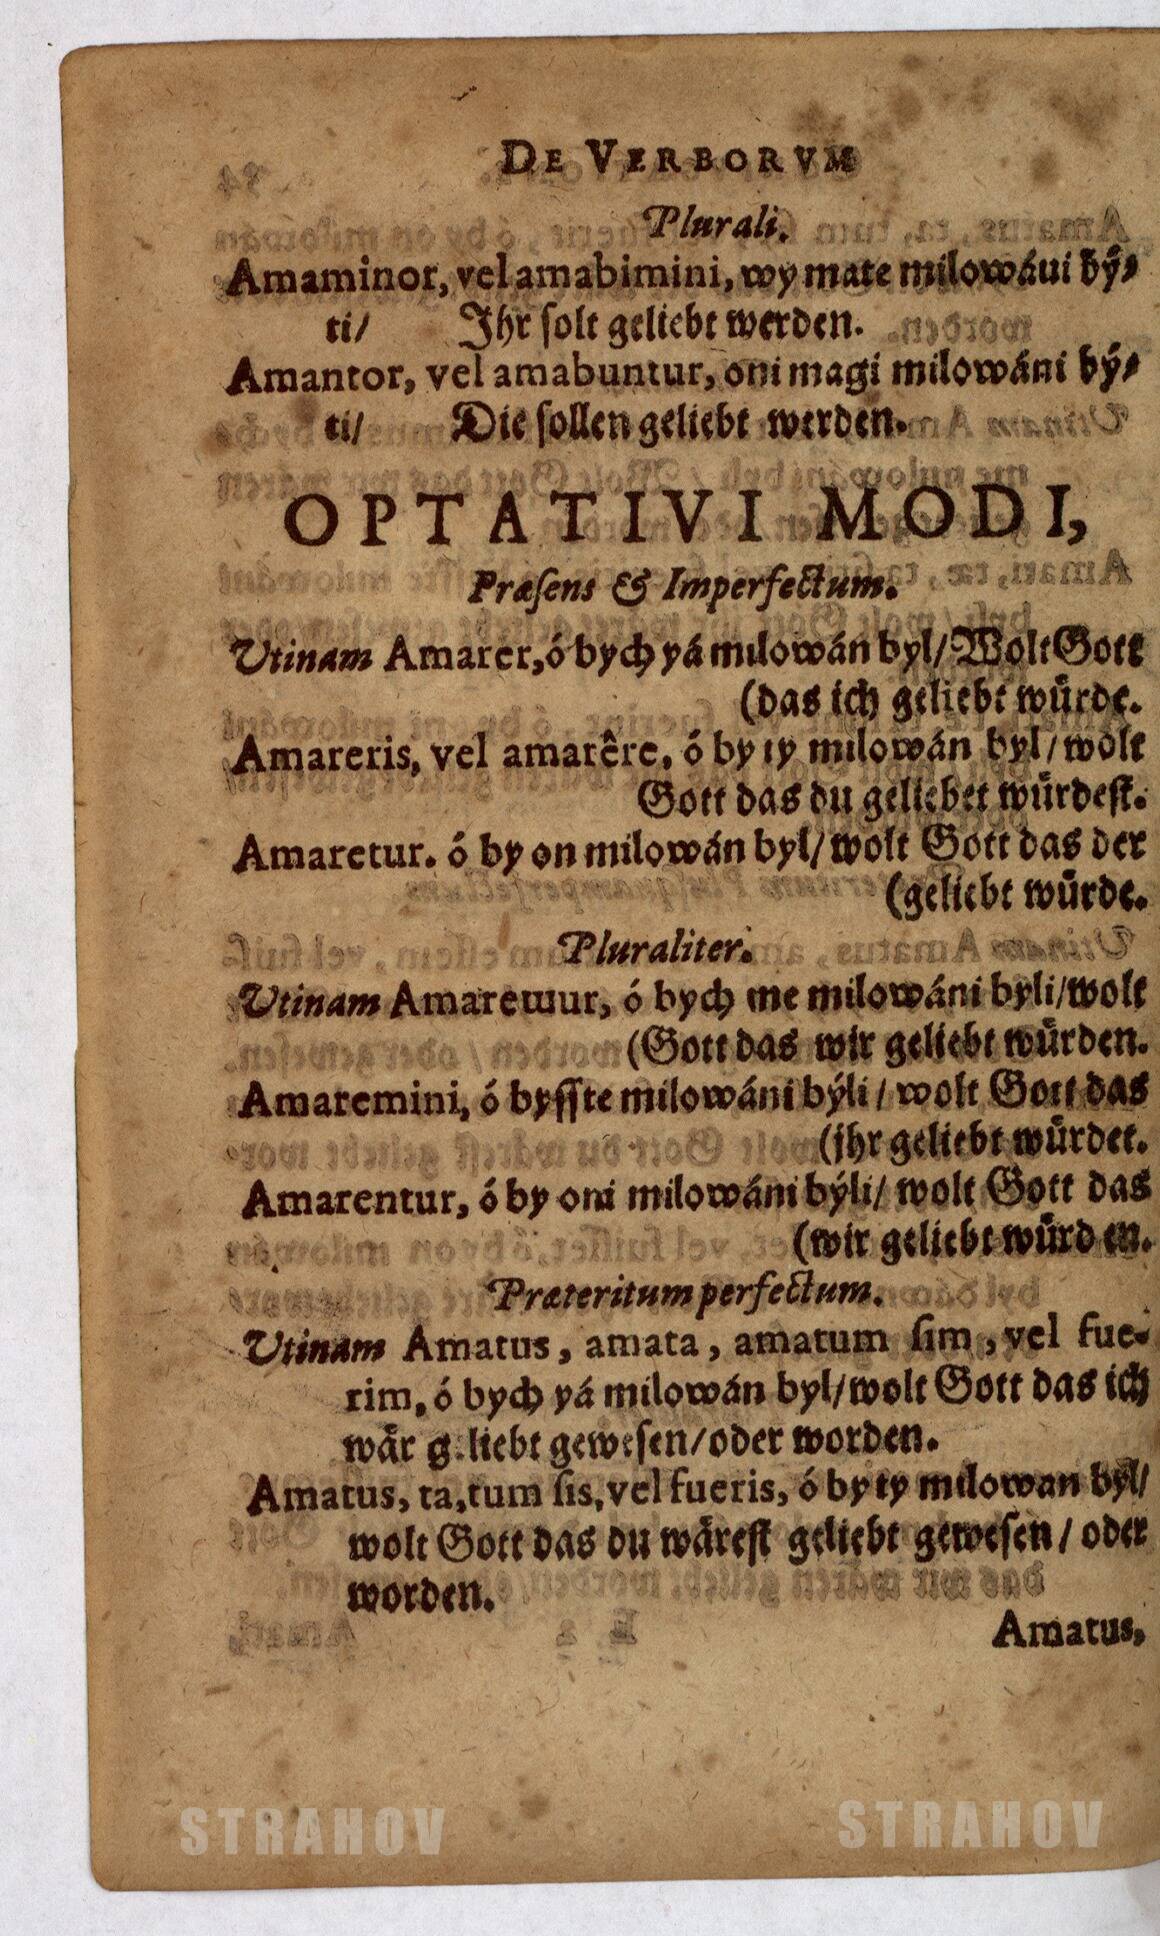 DE VERBORVM
Plurali.
Amaminor, vel amabimini, wy mate milowáni bý⸗
ti/ Jhr ſolt geliebt werden.
Amantor, vel amabuntur, oni magi milowáni bý⸗
ti/ Die ſollen geliebt werden.
OPTATIVI MODI,
Præſens & Imperfectum.
Utinam Amarer, ó bych yá milowán byl/ Wolt Gott
(das ich geliebt wuͤrde.
Amareris, vel amarêre, ó by ty milowán byl/ wolt
Gott das du geliebet wuͤrdeſt.
Amaretur. ó by on milowán byl/ wolt Gott das der
(geliebt wuͤrde.
Pluraliter.
Utinam Amaremur, ó bych me milowáni byli/ wolt
(Gott das wir geliebt wuͤrden.
Amaremini, ó byſſte milowáni býli/ wolt Gott das
(jhr geliebt wuͤrdet.
Amarentur, ó by oni milowáni býli/ wolt Gott das
(wir geliebt wuͤrd en.
Præteritum perfectum.
Utinam Amatus, amata, amatum ſim, vel fue-
rim, ó bych yá milowán byl/ wolt Gott das ich
waͤr g.liebt geweſen/ oder worden.
Amatus, ta, tum ſis, vel fueris, ó by ty milowan byl/
wolt Gott das du waͤreſt geliebt geweſen/ oder
worden.
Amatus,
STRAHOV STRAHOV